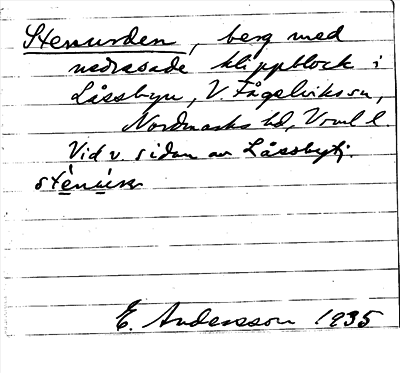 Stenurden, berg med
nedrasade klippblock i
Låssbyn, V. Fågelviks sn,
Nordmarks hd, Vrml l.
Vid v. sidan av Låssbytj.
E. Andersson 1935